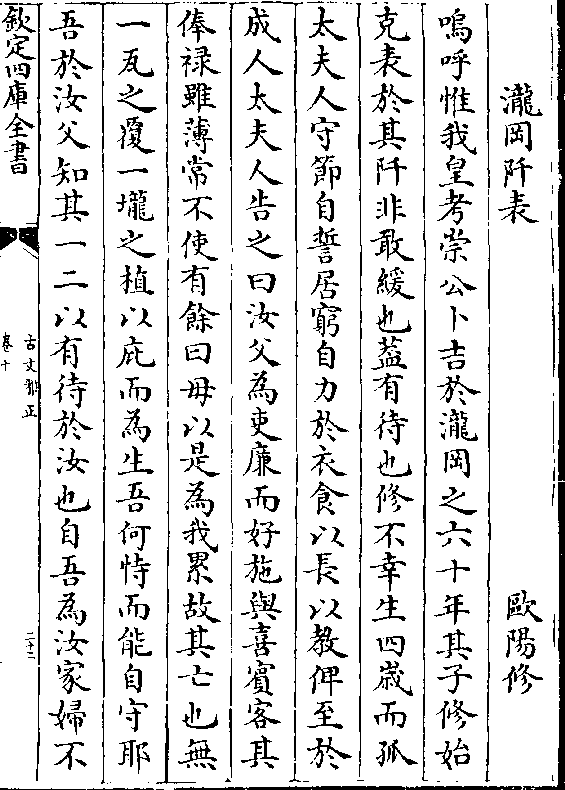 瀧岡阡表 歐陽修
嗚呼惟我皇考崇公卜吉於瀧岡之六十年其子修始
克表於其阡非敢緩也葢有待也修不幸生四嵗而孤
太夫人守節自誓居窮自力於衣食以長以教俾至於
成人太夫人告之曰汝父為吏廉而好施與喜賓客其
俸禄雖薄常不使有餘曰毋以是為我累故其亡也無
一瓦之覆一壠之植以庇而為生吾何恃而能自守耶
吾於汝父知其一二以有待於汝也自吾為汝家婦不
欽定四庫全書
古文雅正
卷十
二十二